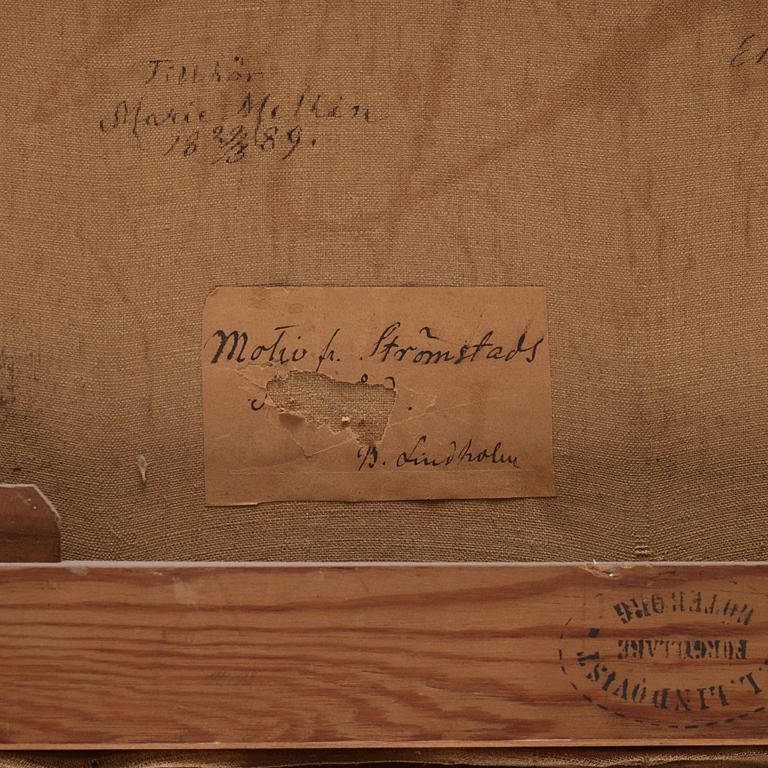 Tillhör
Marie
18 22/3 89.
Motiv fr. Strömstads
B. Lindholm
L. LINDQVIST
FÖRGYLLARE
GÖTEBORG